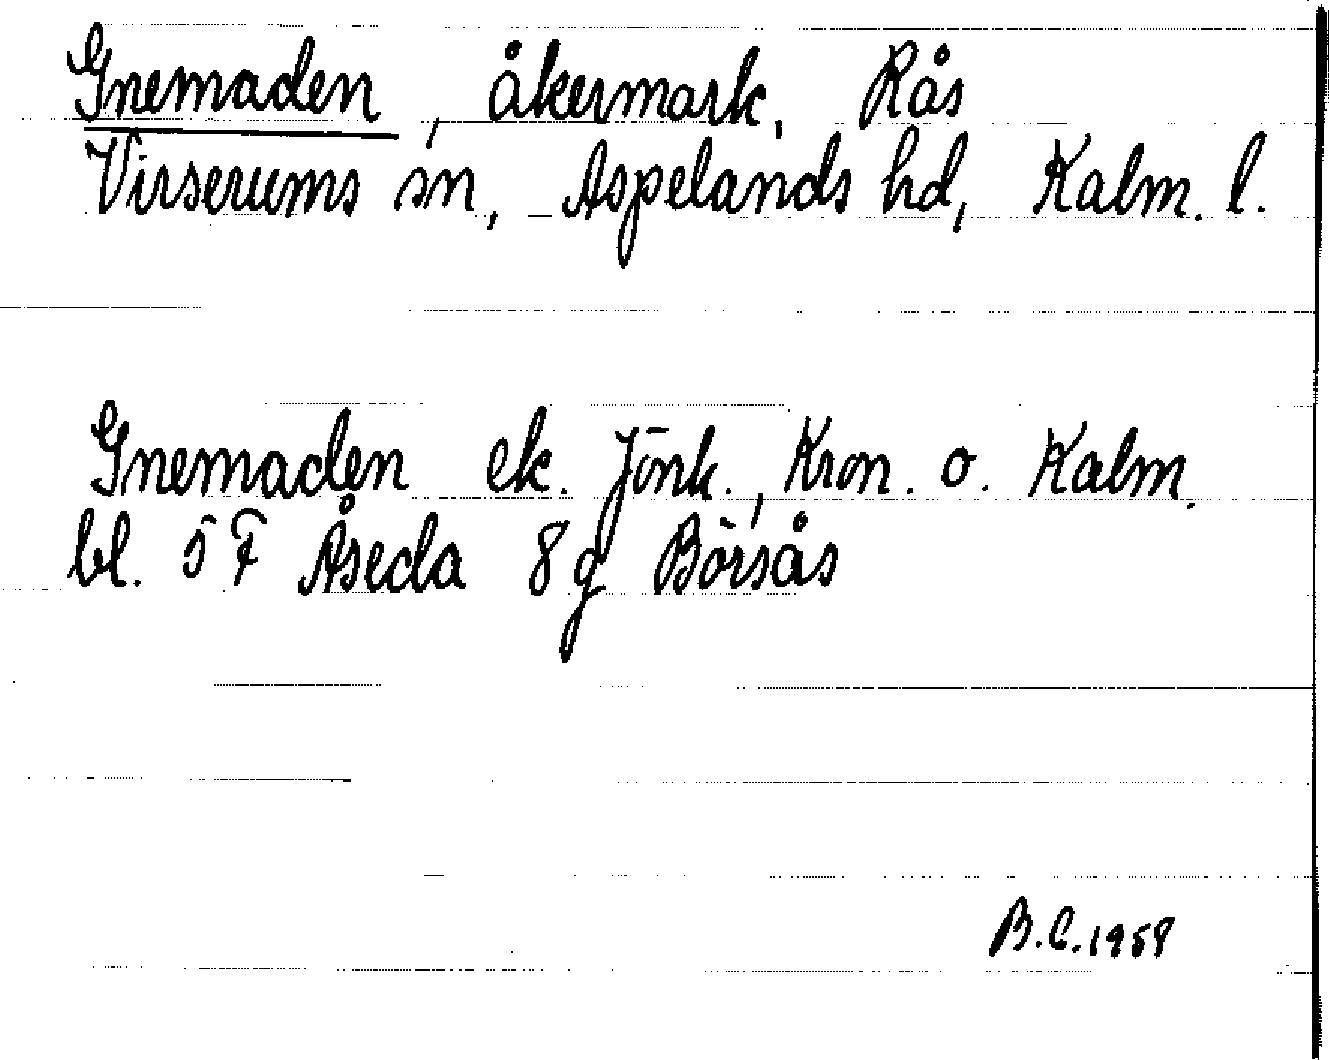 Gnemaden, åkermark, Rås
Virserums sn, Aspelands hd, Kalm. l.
Gnemaden ek. Jönk., Kron. o. Kalm.
bl. 5 F Åseda 8 g Börsås
B.C. 1958